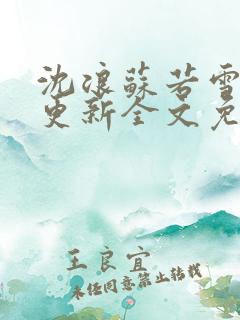 沈浪蘇若雪
更新全文免
王良宜
未经同意禁止转载